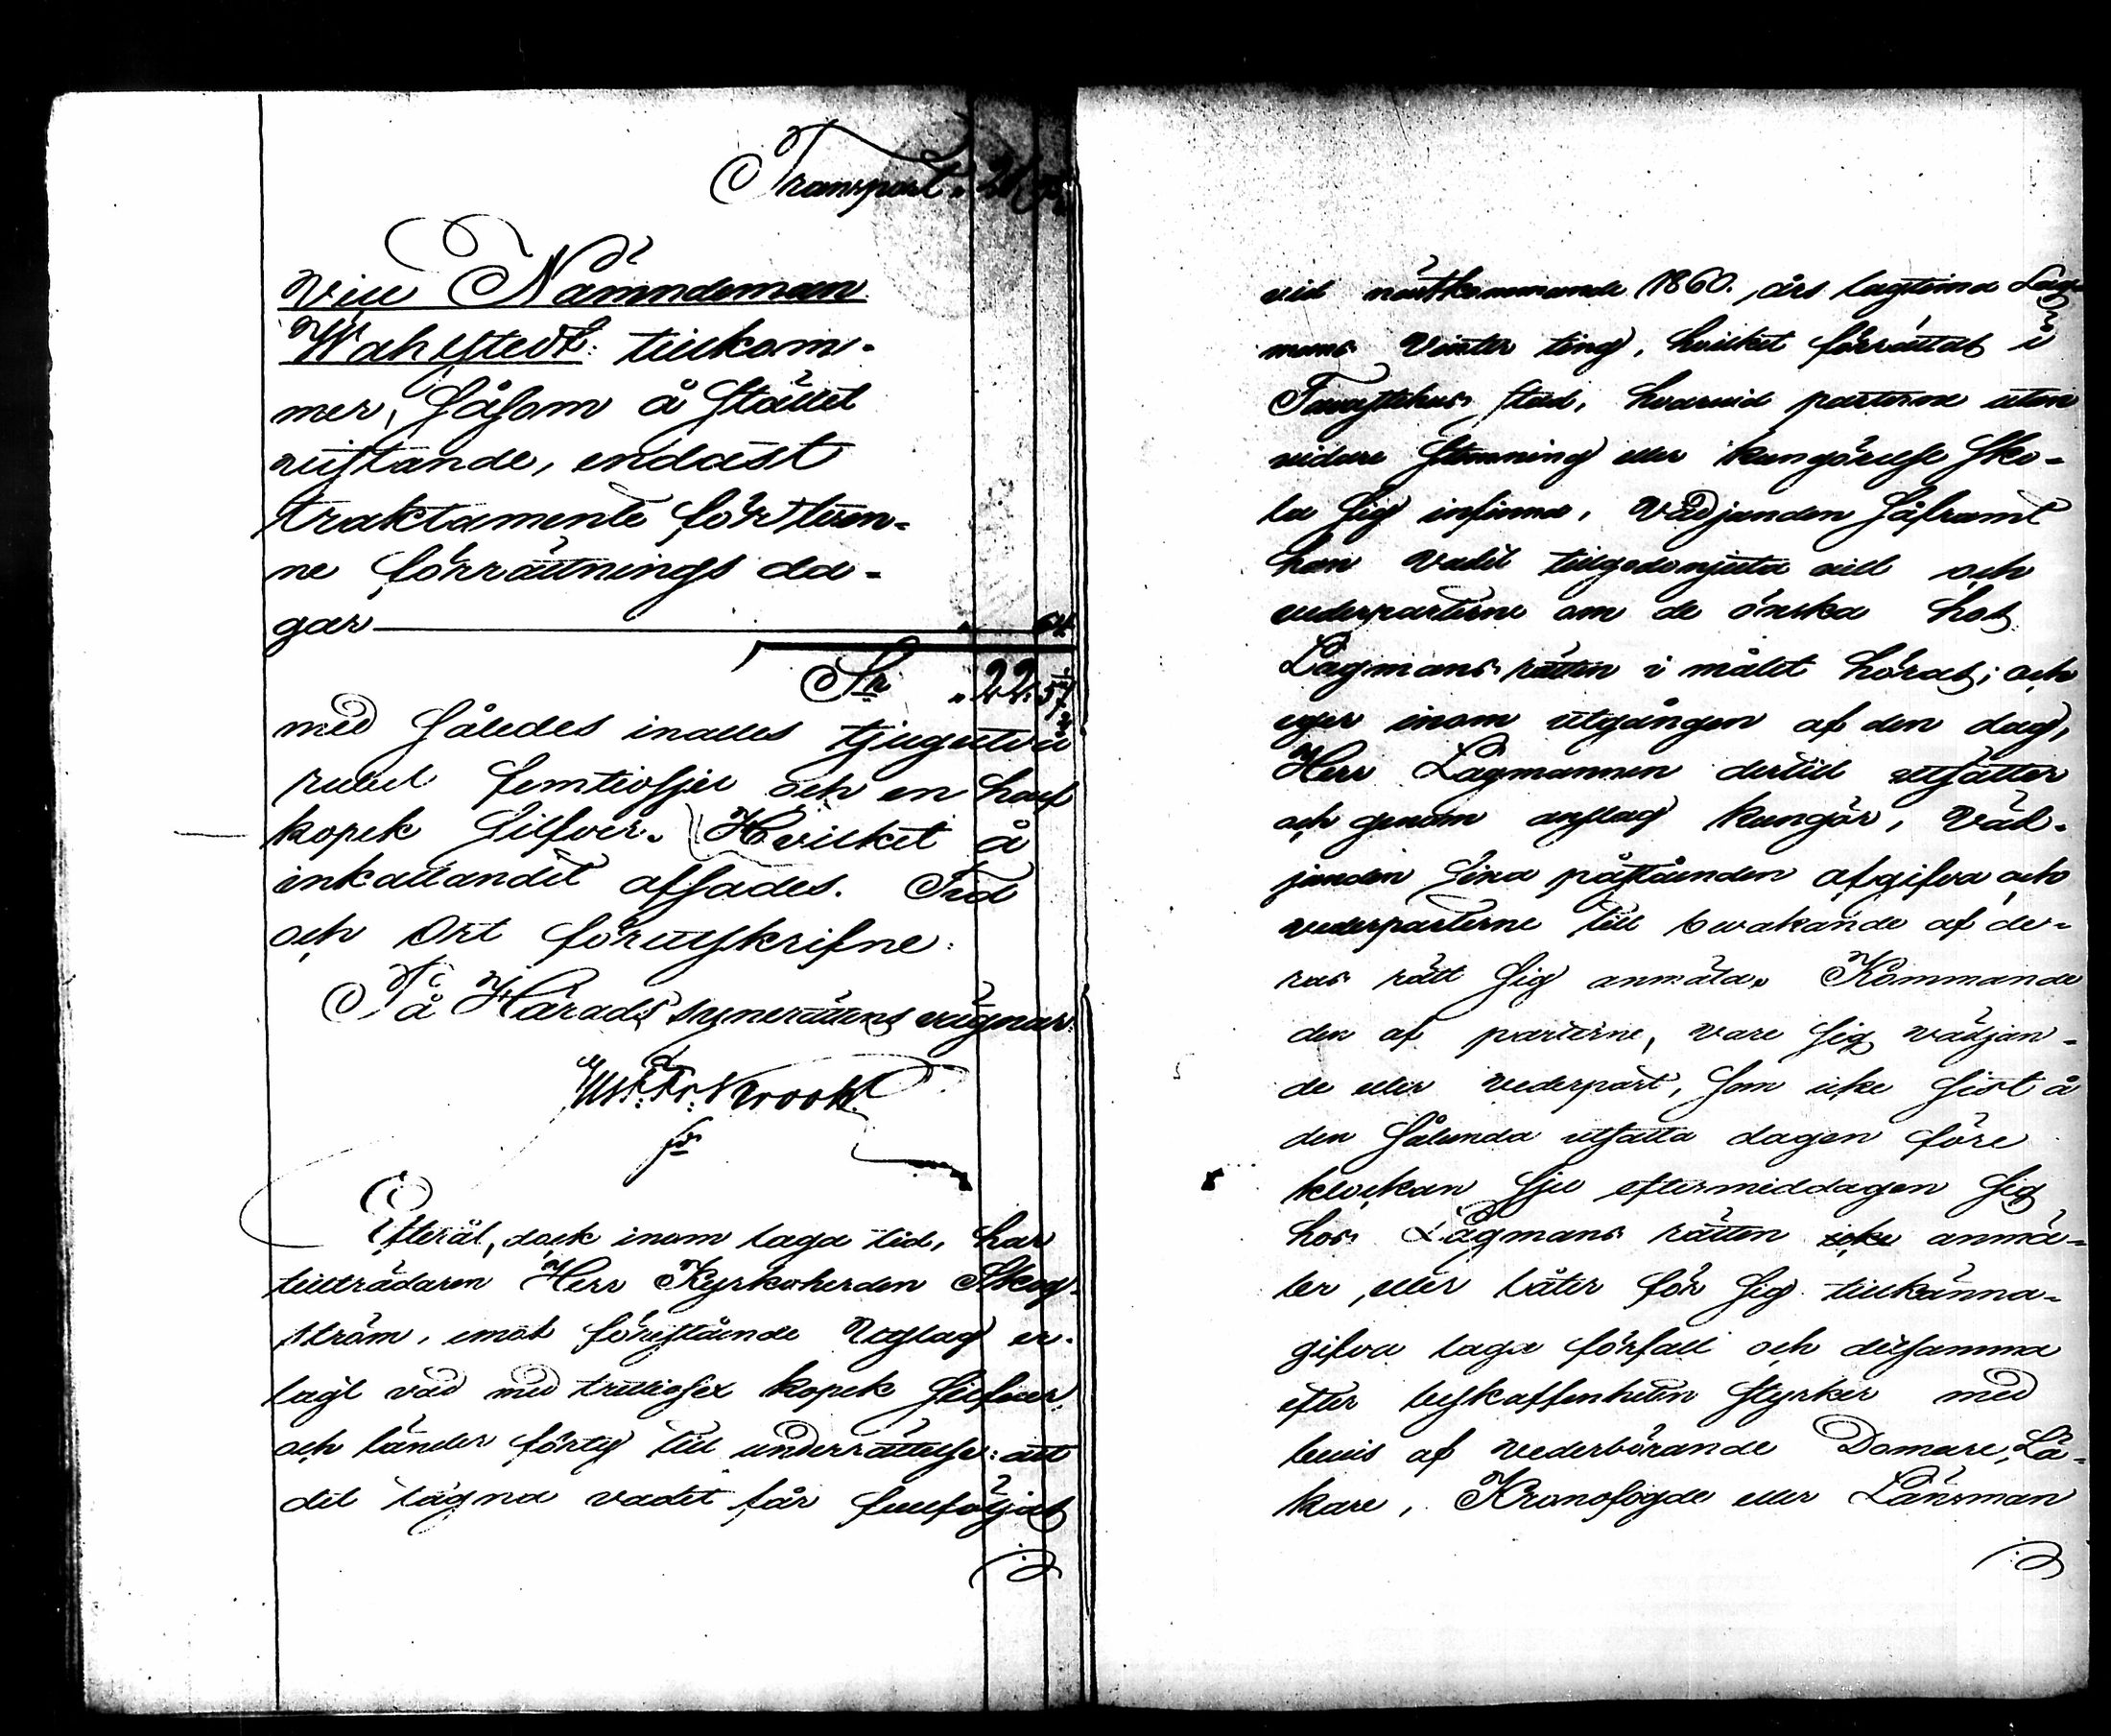 Transport „ 21
Vice Nämndeman
Wahlstedt: tillkom-
mer, såsom å stället
vistande, endast
traktamente för tven-
ne förrättnings da-
gar „ 64
Sr „ 22. 57 1/2
med således inalles tjugutvå
rubel femtiosju och en half
kopek silfver. Hvilket å
inkallandet afsades. Tid
och Ort förutskrifne.
På Härads synerättens vägnar:
Krook
Efteråt, dock inom laga tid, har
tillträdaren Herr Kyrkoherden Skog-
ström, emot förestående Utslag er-
lagt vad med trettiosex kopek silfver,
och länder förty till underrättelse: att
det tagna vadet får fullföljas
vid nästkommande 1860. års lagtima Lag-
mans Vinter ting, hvilket förrättas i
Tavastehus stad, hvarvid parterne utan
vidare stämning eller kungörelse sko-
la sig infinna, Vädjanden såframt
han Vadet tillgodonjuta vill och
vederparterne om de önska hos
Lagmans rätten i målet höras; och
eger inom utgången af den dag,
Herr Lagmannen dertill utsätter
och genom anslag kungör, Väd-
janden sina påståenden afgifva och
vederparterne till bevakande af de-
ras rätt sig anmäla. Kommande
den af parterne, vare sig vädjan-
de eller vederpart, som icke sist å
den sålunda utsatta dagen före
klockan sju eftermiddagen sig
hos Lagmans rätten icke anmä-
ler, eller låter för sig tillkänna-
gifva laga förfall och detsamma
efter beskaffenheten styrker med
bevis af vederbörande Domare, Lä-
kare, Kronofogde eller Länsman